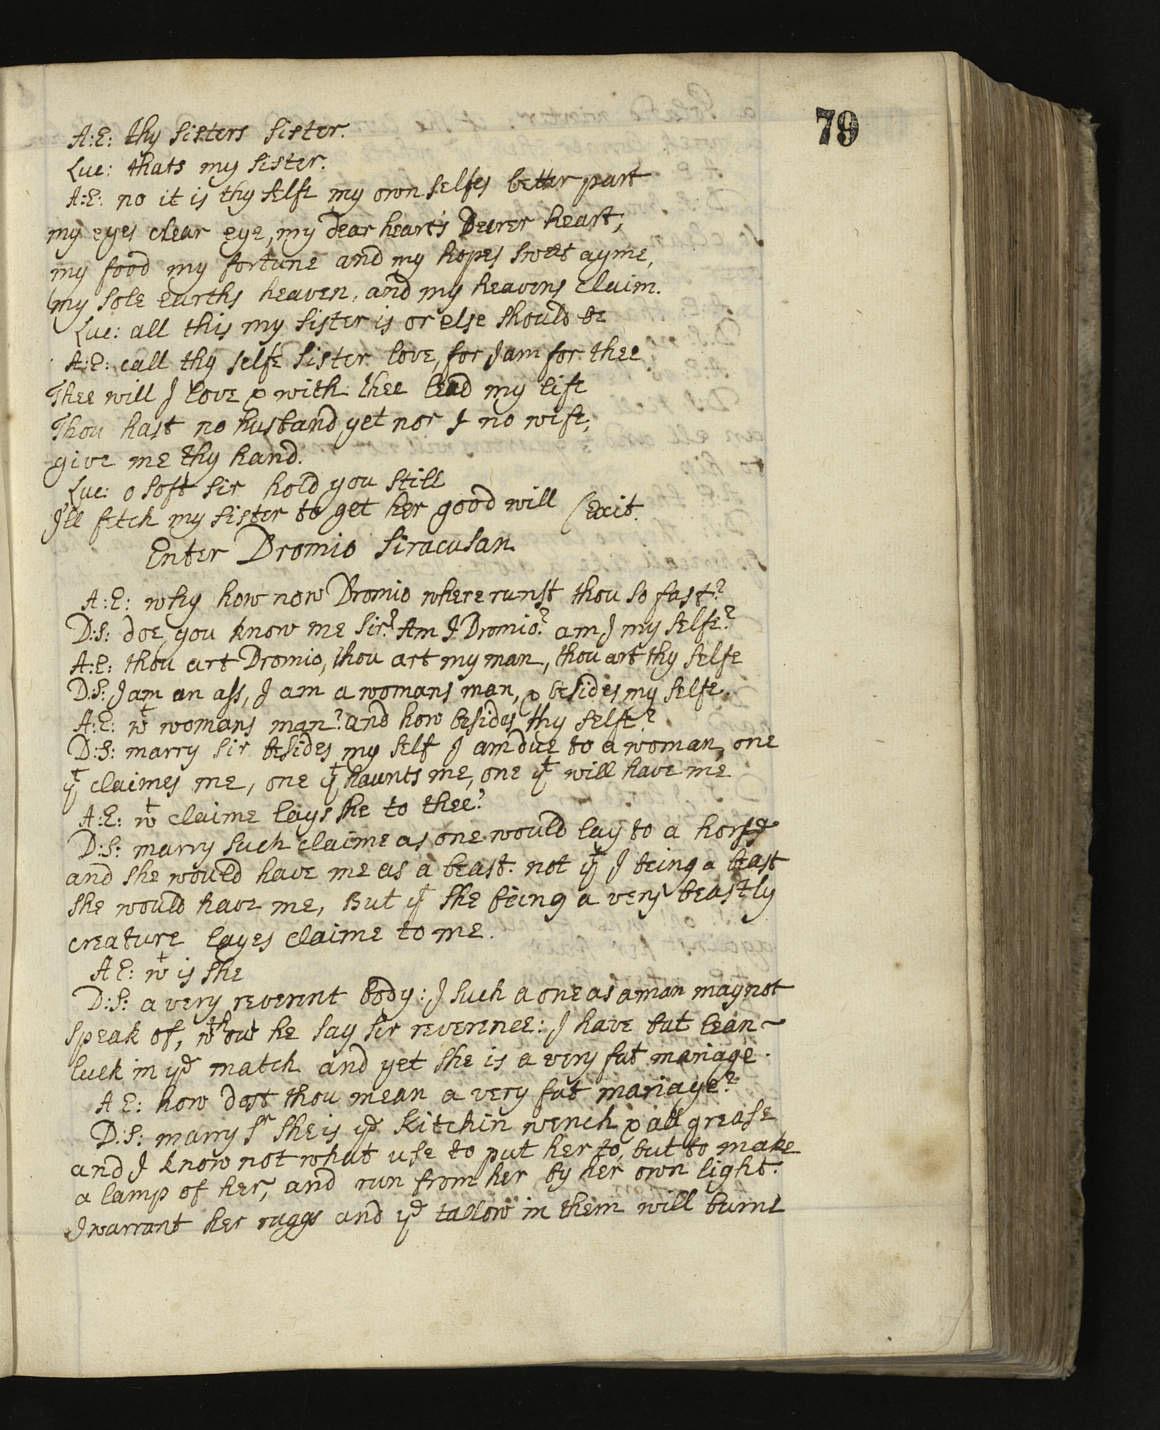 79
A:E: thy sisters sister.
Luc: thats my sister.
A:E: no it is thy selfe my own selfes better part
my eyes clear eye, my dear heart's Dearer heart,
my food my fortune and my hopes sweet ayme,
my sole earths heaven, and my heavens claim.
Luc: all this my sister is or else should be
A:E: call thy selfe sister love, for I am for thee
Thee will I love & with thee lead my life
Thou hast no husband yet nor I no wife,
give me thy hand.
Luc: o soft sir hold you still
I'll fetch my sister to get her good will (Exit.
Enter Dromio Siracusan
A:E: why how now Dromio where runst thou so fast?
D:S: doe you know me sir? Am I Dromio? am I my selfe?
A:E: thou art Dromio, thou art my man, thou art thy selfe
D:S: I am an ass, I am a womans man, & besides my selfe.
A:E: wt womans man? and how besides thy selfe?
D:S: marry sir besides my self I am due to a woman, one
yt claimes me, one yt haunts me, one yt will have me
A:E: wt claime lays she to thee?
D:S: marry such claime as one would lay to a horse
and she would have me as a beast: not yt I being a beast
she would have me, But yt she being a very beastly
creature layes claime to me.
A E: wt is she
D:S: a very reverent body: I such a one as a man may not
speak of, wthout he say sir reverence: I have but lean
luck in ye match and yet she is a very fat mariage.
A E: how dost thou mean a very fat mariage?
D:S: marry Sr she is ye Kitchin wench & all grease
and I know not what use to put her to, but to make
a lamp of her, and run from her by her own light.
I warrant her raggs and ye tallow in them will burne